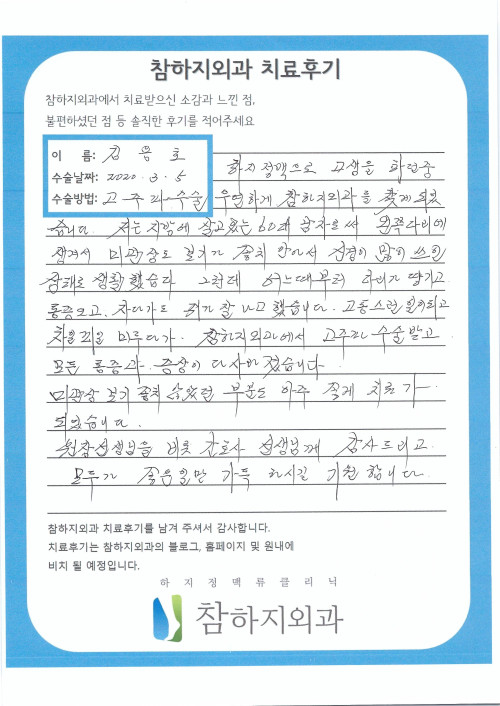 참하지외과 치료후기
참하지외과에서 치료받으신 소감과 느낀 점,
불편하셨던 점 등 솔직한 후기를 적어주세요
이 름: 김 용 호
수술날짜: 2020. 3. 5
수술방법: 고주파수술
하지정맥으로 고생을 하던중
우연하게 참하지외과를 찾게 되었
습니다. 저는 지방에 살고있는 60대 남자로써 왼쪽다리에
생겨서 미관상도 보기가 좋치 않아서 신경이 많이 쓰인
상태로 생활했습니다 그런데 어느때부터 다리가 땅기고
통증오고, 자다가도 쥐가 잘 나고 했습니다. 고통스런 일이되고
치료를 미루다가. 참하지외과에서 고주파 수술받고
모든 통증과. 증상이 다 사라 졌습니다.
미관상 보기 좋치 않았던 부분도 아주 좋게 치료가
되었습니다.
원장선생님을 비롯 간호사 선생님께 감사드리고
모두가 좋은일만 가득 하시길 기원합니다.
참하지외과 치료후기를 남겨 주셔서 감사합니다.
치료후기는 참하지외과의 블로그, 홈페이지 및 원내에
비치 될 예정입니다.
하지정맥류클리닉
참하지외과